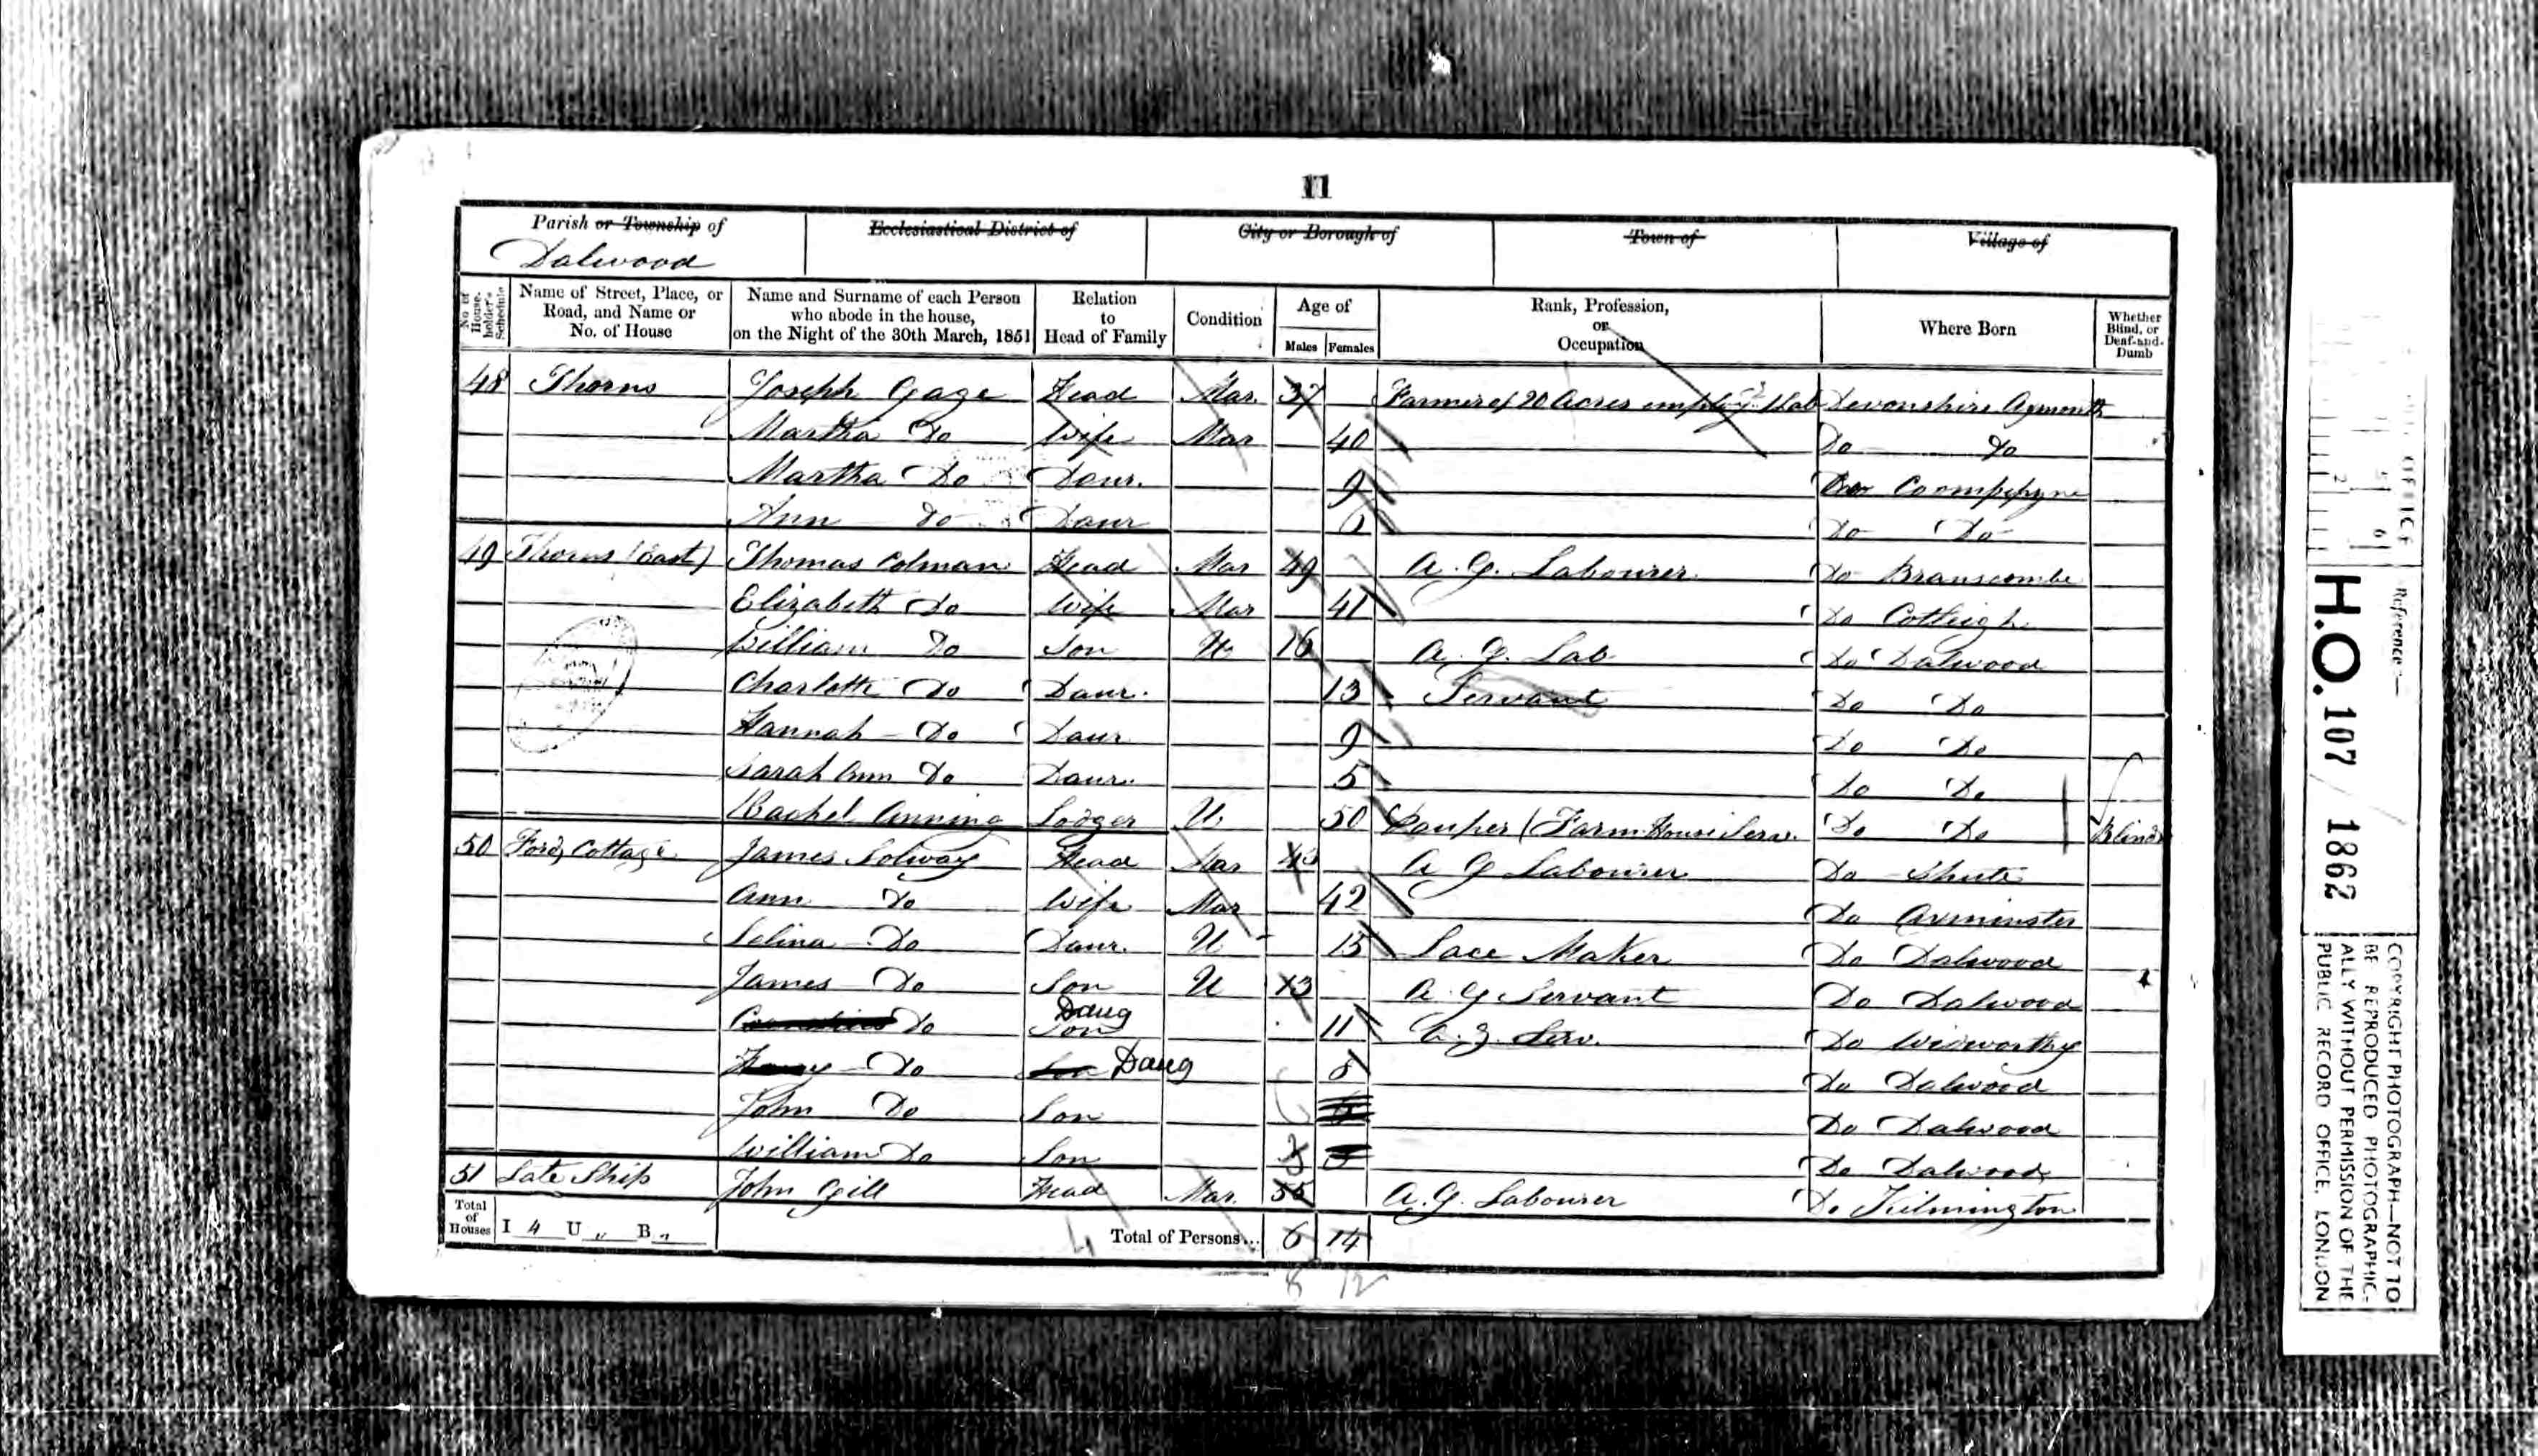 11
Parish or Township of Ecclesiastical District of City or Borough of Town of Village of
Dalwood
No. of House-holder's Schedule Name of Street, Place, or Road, and Name or No. of House Name and Surname of each Person who abode in the house, on the Night of the 30th March, 1851 Relation to Head of Family Condition Age of Males Females Rank, Profession, or Occupation Where Born Whether Blind, or Deaf-and-Dumb
48 Thorns Joseph Gage Head Mar. 37 Farmer of 20 Acres Devonshire
Martha Do Wife Mar 40 Do Do
Martha Do Daur. 9 Coompyne
Ann Do Daur Do Do
49 Thorns (East) Thomas Colman Head Mar 49 A. G. Labourer Do Branscombe
Elizabeth Do Wife Mar 41 Do Cotleigh
William Do Son U 16 A. G. Lab Do Dalwood
Charlotte Do Daur. 13 Servant Do Do
Hannah Do Daur 9 Do Do
Sarah Ann Do Daur. 5 Do Do
Rachel Anning Lodger U 50 Pauper (Farm House Serv. Do Do Blind
50 Ford Cottage James Solway Head Mar 43 A G Labourer Do Shute
Ann Do Wife Mar 42 Do Axminster
Selina Do Daur. U 15 Lace Maker Do Dalwood
James Do Son U 13 A. G Servant Do Dalwood
Do Son Daug 11 A. G. Serv. Do Widworthy
Do Son Daug 8 Do Dalwood
John Do Son 6 Do Dalwood
William Do Son 3 Do Dalwood
51 Late Ship John Gill Head Mar. 55 A. G. Labourer Do Kilmington
Total of Houses I 4 U „ B „ Total of Persons... 6 14
4 8 12
OFFICE
Reference:—
H.O. 107 / 1862
COPYRIGHT PHOTOGRAPH—NOT TO
BE REPRODUCED PHOTOGRAPHIC-
ALLY WITHOUT PERMISSION OF THE
PUBLIC RECORD OFFICE, LONDON